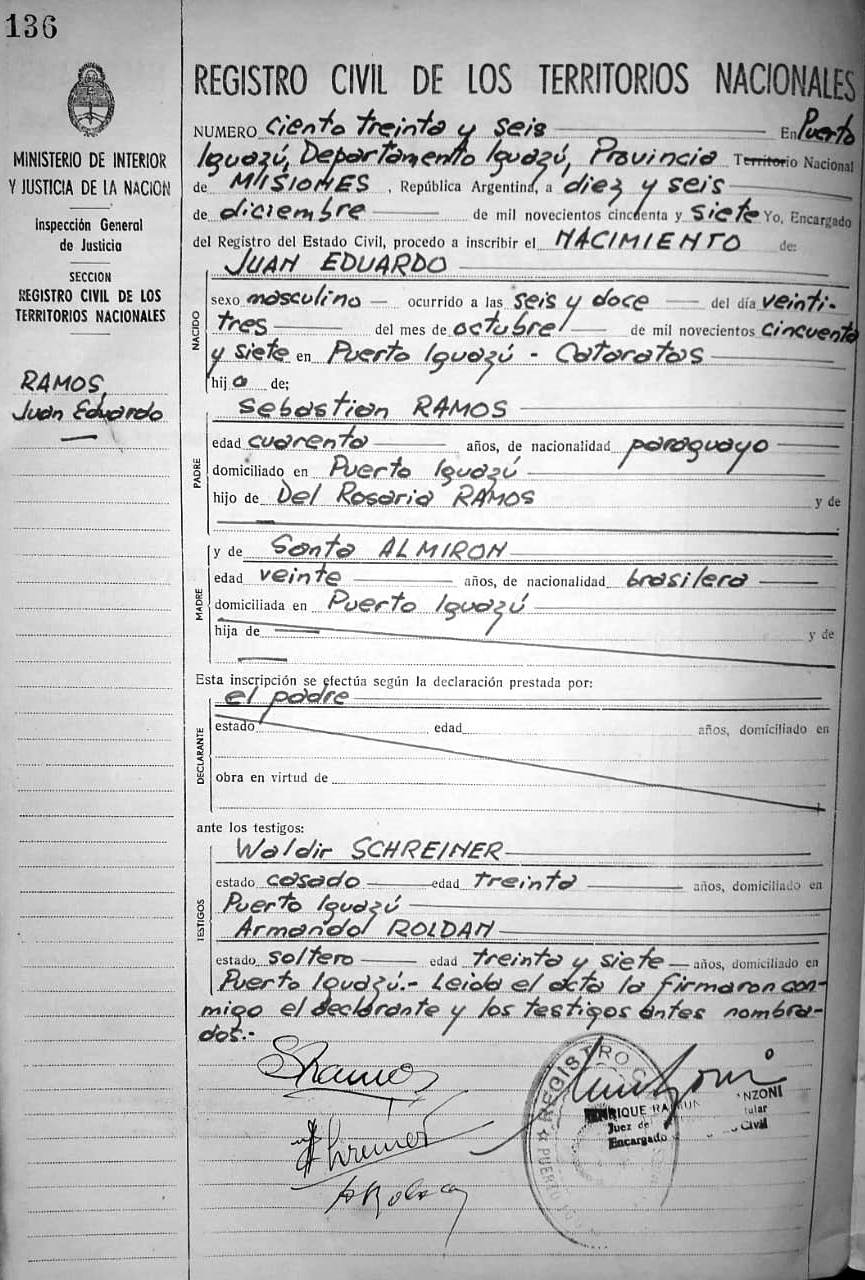 136
MINISTERIO DE INTERIOR
Y JUSTICIA DE LA NACION
Inspección General
de Justicia
SECCION
REGISTRO CIVIL DE LOS
TERRITORIOS NACIONALES
RAMOS
Juan Eduardo
REGISTRO CIVIL DE LOS TERRITORIOS NACIONALES
NUMERO Ciento treinta y seis En Puerto
Iguazú, Departamento Iguazú, Provincia Territorio Nacional
de MISIONES, República Argentina, a diez y seis
de diciembre de mil novecientos cincuenta y siete Yo, Encargado
del Registro del Estado Civil, procedo a inscribir el NACIMIENTO de:
JUAN EDUARDO
NACIDO
sexo masculino ocurrido a las seis y doce del día veinti-
tres del mes de octubre de mil novecientos cincuenta
y siete en Puerto Iguazú - Cataratas
hijo de;
Sebastian RAMOS
PADRE
edad cuarenta años, de nacionalidad paraguayo
domiciliado en Puerto Iguazú
hijo de Del Rosario RAMOS y de
y de Santa ALMIRON
MADRE
edad veinte años, de nacionalidad brasilera
domiciliada en Puerto Iguazú
hija de y de
Esta inscripción se efectúa según la declaración prestada por:
el padre
DECLARANTE
estado edad años, domiciliado en
obra en virtud de
ante los testigos:
Waldir SCHREINER
TESTIGOS
estado casado edad treinta años, domiciliado en
Puerto Iguazú
Armando ROLDAN
estado soltero edad treinta y siete años, domiciliado en
Puerto Iguazú.- Leida el acta la firmaron con-
migo el declarante y los testigos antes nombra-
dos.-
SRamos
REGISTRO
PUERTO
ENRIQUE NZONI
Juez de tular
Encargado Civil